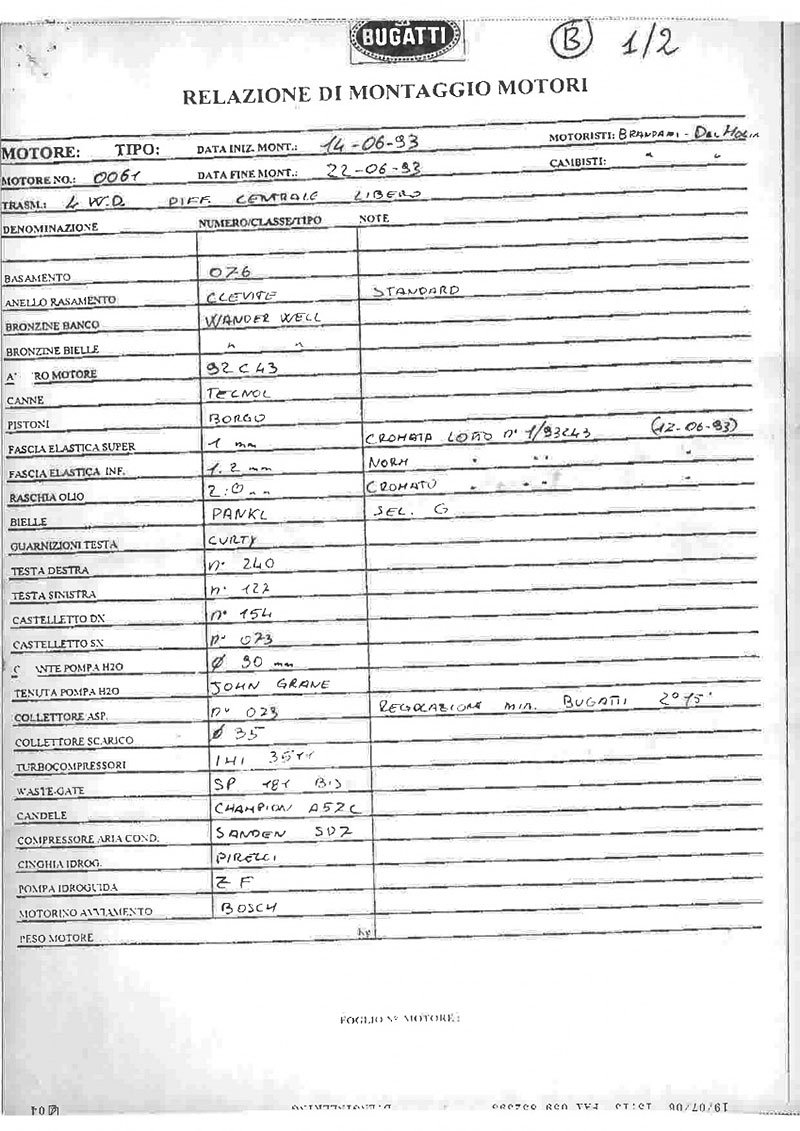 BUGATTI
B 1/2
RELAZIONE DI MONTAGGIO MOTORI
MOTORE: TIPO: DATA INIZ. MONT.: 14-06-93 MOTORISTI: BRANDANI -
MOTORE NO.: 0061 DATA FINE MONT.: 22-06-93 CAMBISTI: " "
TRASM.: 4 W.D DIFF CENTRALE LIBERO
DENOMINAZIONE NUMERO/CLASSE/TIPO NOTE
BASAMENTO 076
ANELLO RASAMENTO CLEVITE STANDARD
BRONZINE BANCO WANDER WELL
BRONZINE BIELLE " "
RO MOTORE 92 C 43
CANNE TECNOL
PISTONI BORGO
FASCIA ELASTICA SUPER 1 mm CROMATA LOTTO n° 1/93243 (12-06-93)
FASCIA ELASTICA INF. 1.2 mm NORM " " "
RASCHIA OLIO 2.0 " " CROMATO " " " "
BIELLE PANKL SEL. G
GUARNIZIONI TESTA CURTY
TESTA DESTRA n° 240
TESTA SINISTRA n° 122
CASTELLETTO DX n° 154
CASTELLETTO SX n° 073
NTE POMPA H2O Ø 90 mm
TENUTA POMPA H2O JOHN GRANE
COLLETTORE ASP. n° 023 REGOLAZIONE MIN. BUGATTI 2°15'
COLLETTORE SCARICO Ø 35
TURBOCOMPRESSORI IHI
WASTE-GATE SP 181 BIS
CANDELE CHAMPION A52C
COMPRESSORE ARIA COND. SANDEN SD7
CINGHIA IDROG. PIRELLI
POMPA IDROGUIDA Z F
MOTORINO AVVIAMENTO BOSCH
PESO MOTORE Kg
FOGLIO N° MOTORE: